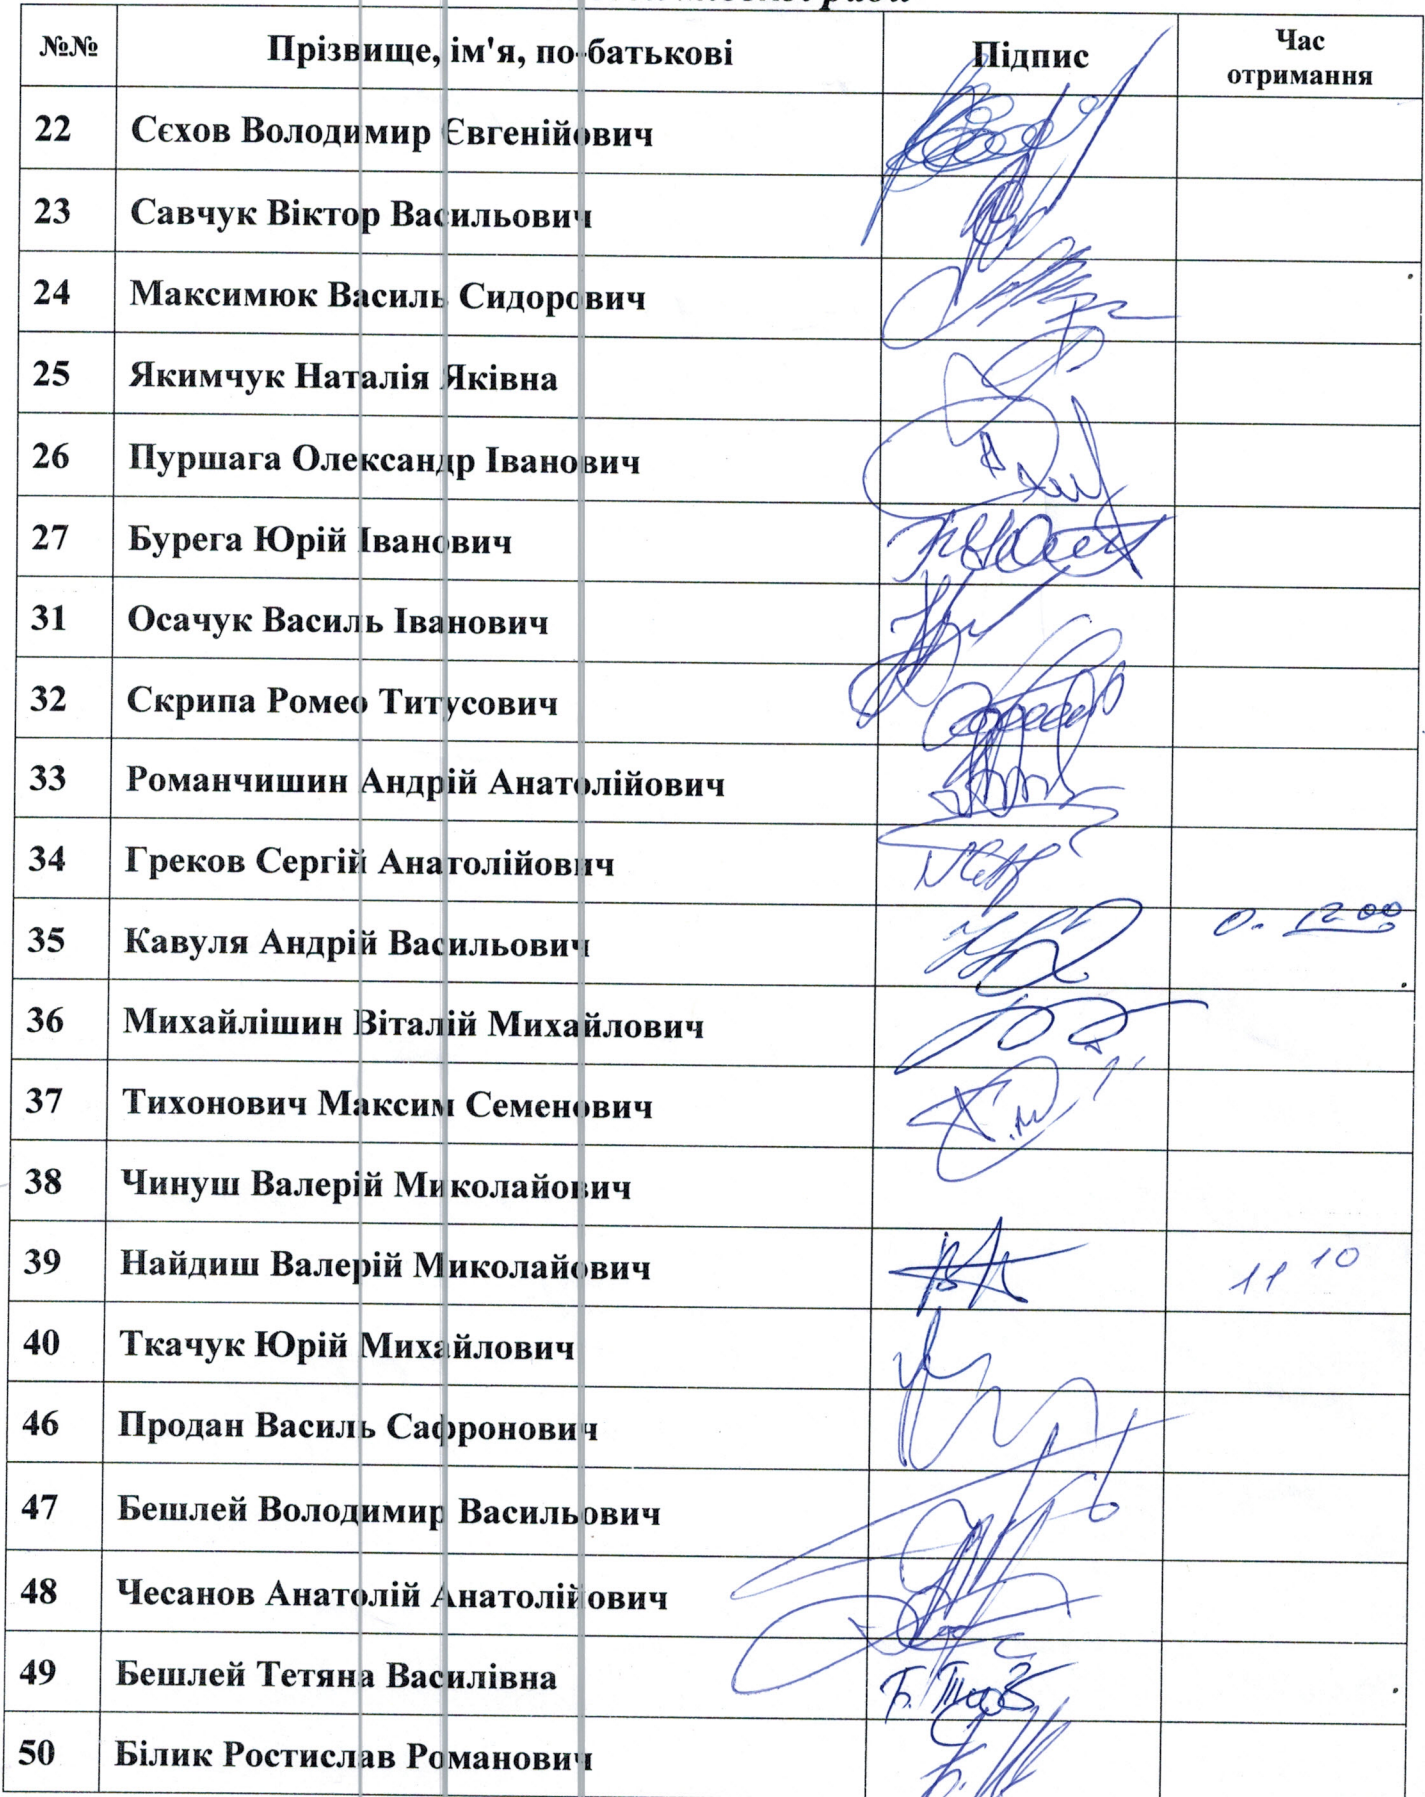 №№ Прізвище, ім'я, по-батькові Підпис Час
отримання
22 Сєхов Володимир Євгенійович
23 Савчук Віктор Васильович
24 Максимюк Василь Сидорович
25 Якимчук Наталія Яківна
26 Пуршага Олександр Іванович
27 Бурега Юрій Іванович
31 Осачук Василь Іванович
32 Скрипа Ромео Титусович
33 Романчишин Андрій Анатолійович
34 Греков Сергій Анатолійович
35 Кавуля Андрій Васильович 12 00
36 Михайлішин Віталій Михайлович
37 Тихонович Максим Семенович
38 Чинуш Валерій Миколайович
39 Найдиш Валерій Миколайович 11 10
40 Ткачук Юрій Михайлович
46 Продан Василь Сафронович
47 Бешлей Володимир Васильович
48 Чесанов Анатолій Анатолійович
49 Бешлей Тетяна Василівна
50 Білик Ростислав Романович